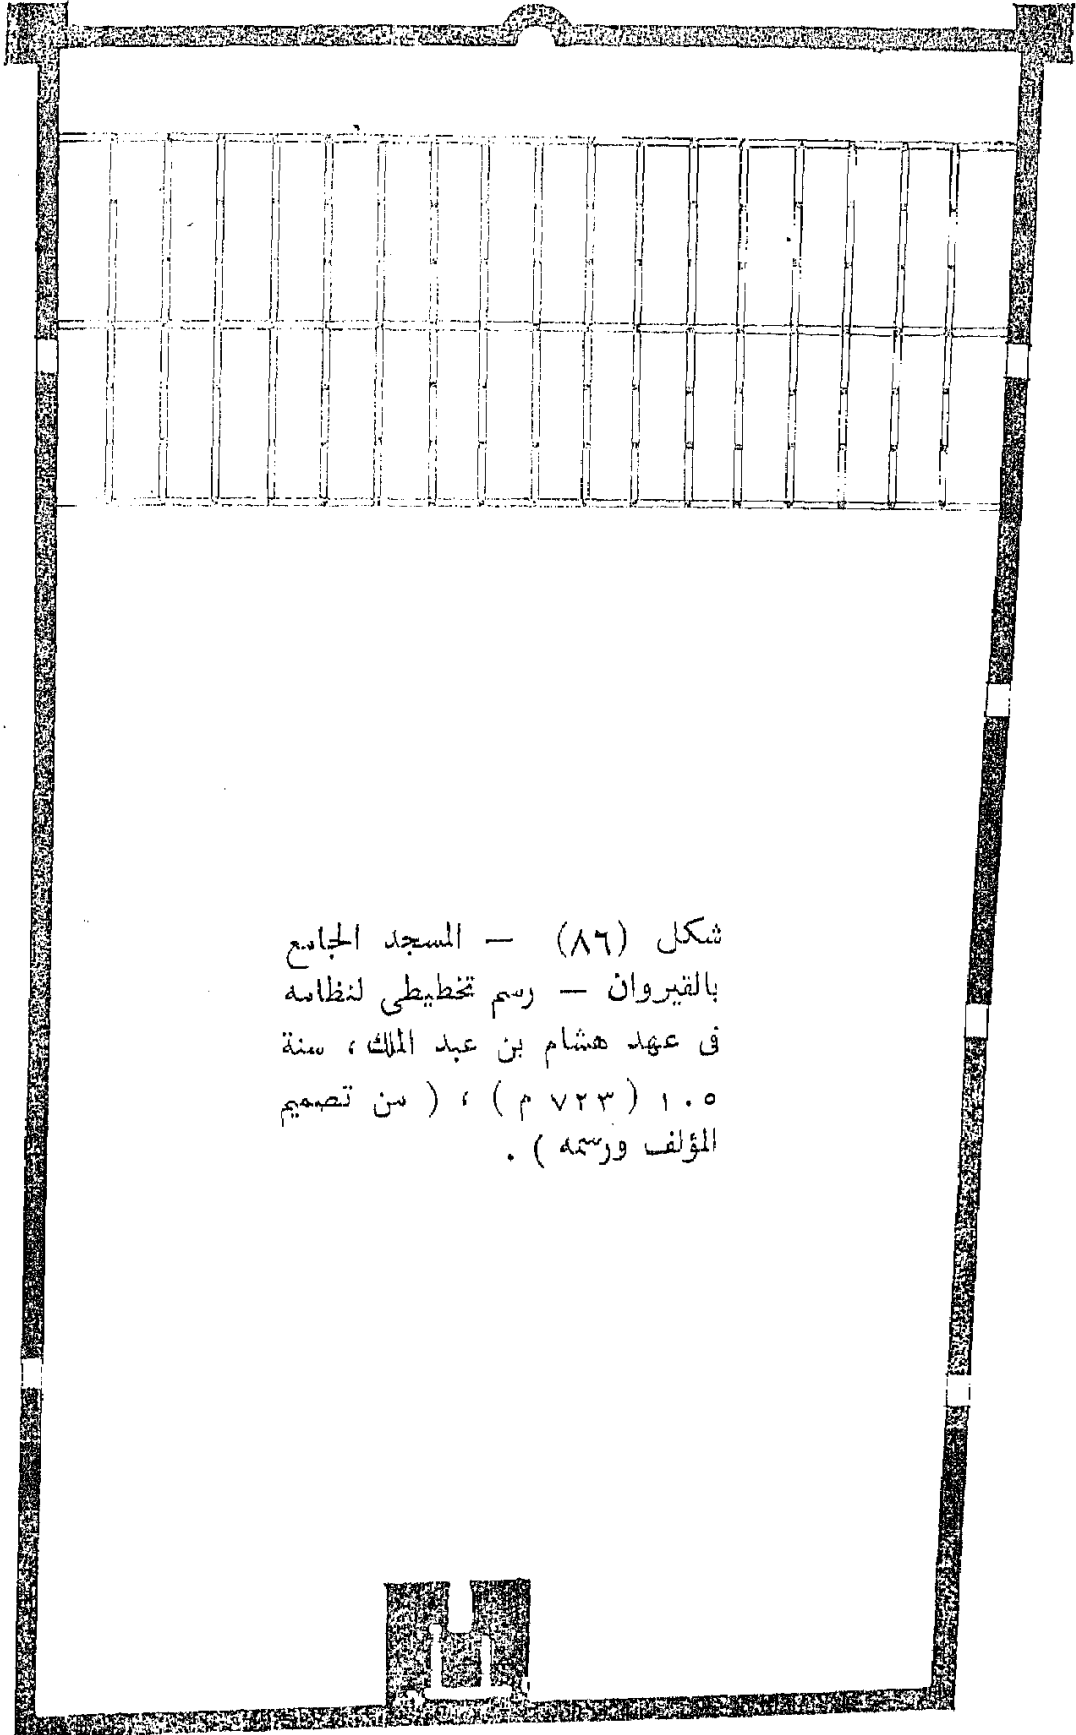 شكل (٨٦) — المسجد الجامع
بالقيروان — رسم تخطيطى لنظامه
فى عهد هشام بن عبد الملك ، سنة
١٠٥ ( ٧٢٣ م ) ، ( من تصميم
المؤلف ورسمه ) .